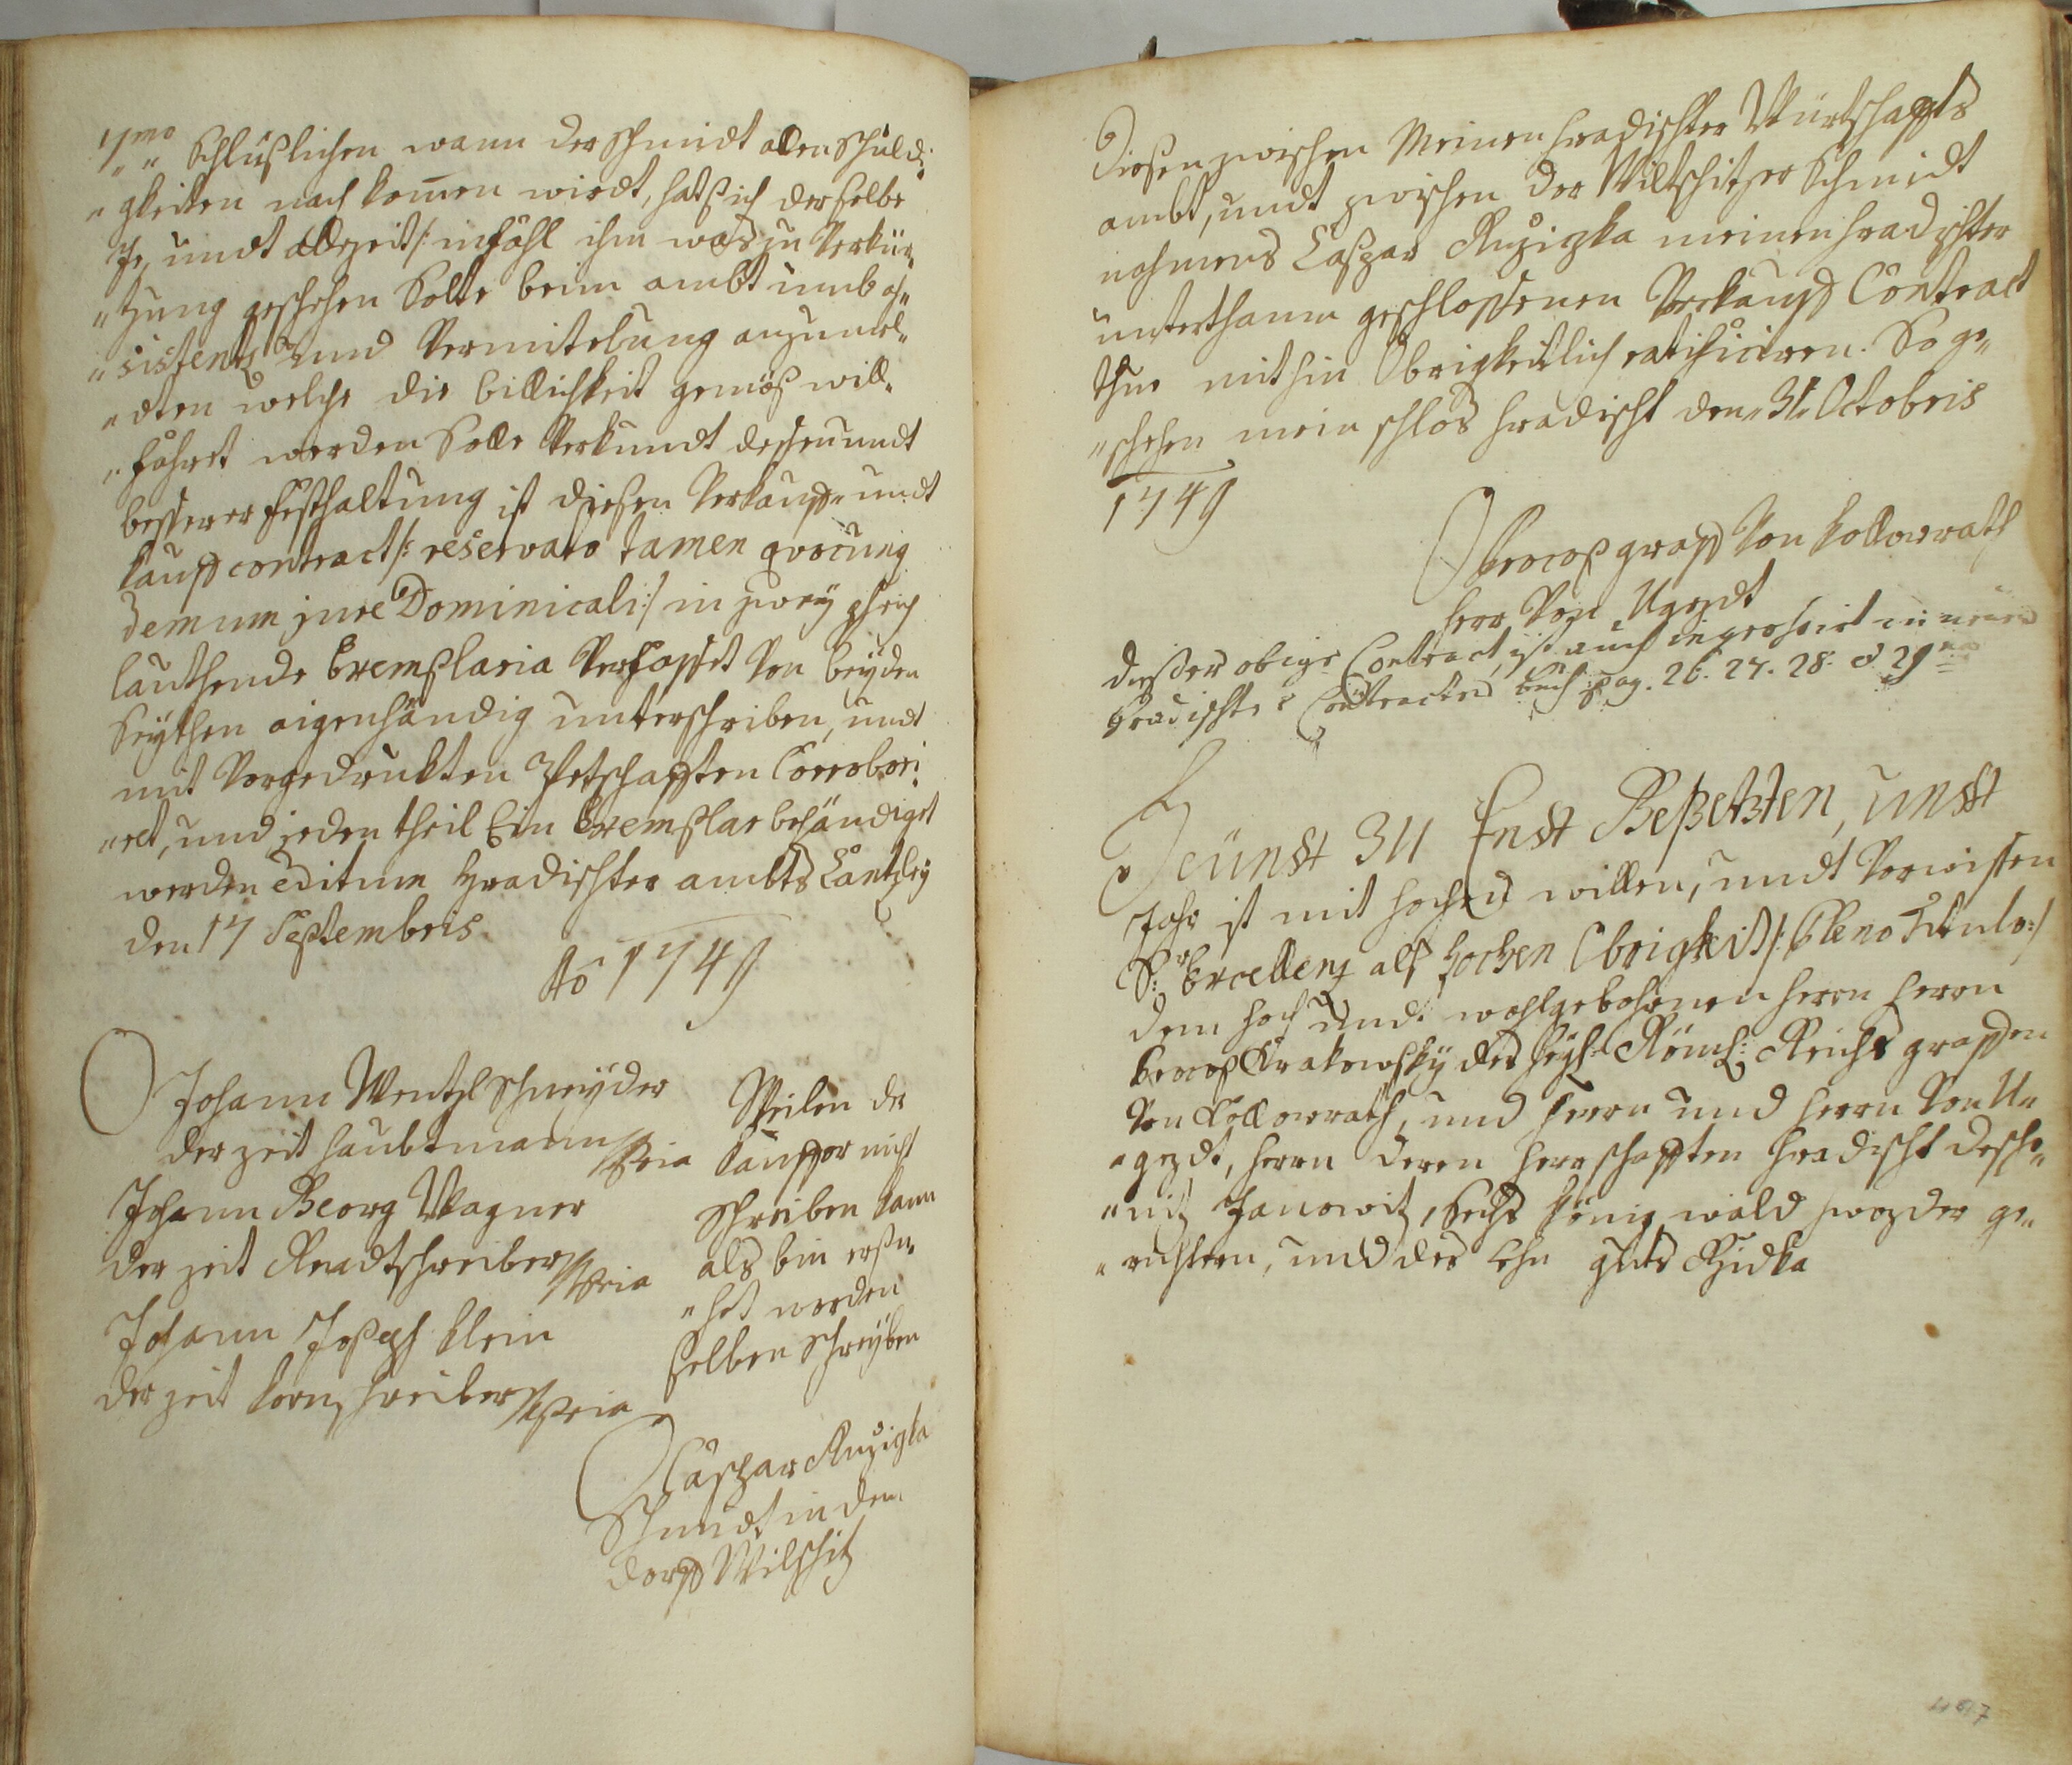 7mo Schlüßlichen wann der Schmidt allen Schuldi„
„gkeiten nach kommen wirdt, hat sich derselbe
Je, undt allezeit /: infahl ihm was zu Verkür„
„tzung geschehen Solte beim ambt umb as„
„sistentz und Vermitelung anzumel„
„dten welche die billichkeit gemöß will„
„fahret werden Solle Verkundt dessen undt
besserer festhaltung ist diesen Verkauff„ undt
Kauff contract /: reservato tamen quocunq
demum jure Dominicali :/ in zweÿ gleich
lauthende Exemplaria Verfasset Von beÿden
Seÿthen aigenhändig unterschriben, undt
mit Vorgedrukten Petschafften Corrobori„
„ret, und jeden theil Ein Exemplar behändiget
werden editum Hradischter ambts Cantzleÿ
den 17 Septembris
Ao 1749
Johann Wentzl Schneÿder
der zeit haubtmann Mpria
Johann Georg Wagner
der zeit Rendtschreiber Mpria
Johann Joseph Klein
der zeit Kornschreiber Mpria
Weilen der
Kauffer nicht
schreiben kann
als bin ersu„
„het worden
selben schreÿben
Caspar Ruzigka
Schmidt in dem
dorff Wilschitz
Diesen zwischen Meinen hradischter Würtschaffts
ambt, undt zwischen der Wiltschitzer Schmidt
nahmens Caspar Ruzizka meinen hradischter
unterthann geschlossenen Verkauff Contract
thue mithin Obrigkeitlich ratificiren. So ge„
„schehen mein schlos hradischt den 31 Octobris
1749
Procop graff Von Kollowrath
herr Von Ugezdt
dießer obige Contract, ist auch ingrossirt in neuen
Hradischter Contracten buch pag. 26. 27. 28. et 29
Heündt zu Endt Beßetzten, undt
Jahr ist mit hochen willen, undt Vorwissen
Sr Excellenz alß Hochen Obrigkeit /: Pleno Titulo :/
dem hoch und wohlgebohrnen herrn herrn
Procop Krakowskÿ des heÿl Römh: Reichs graffen
Von Kollowrath, und herrn und herrn Von U„
„gezdt, herrn deren herrschafften hradischt desche„
„nitz Janowitz, Sechs König wald hwozder ge„
„richtern, und des Lehn guts Rzidka